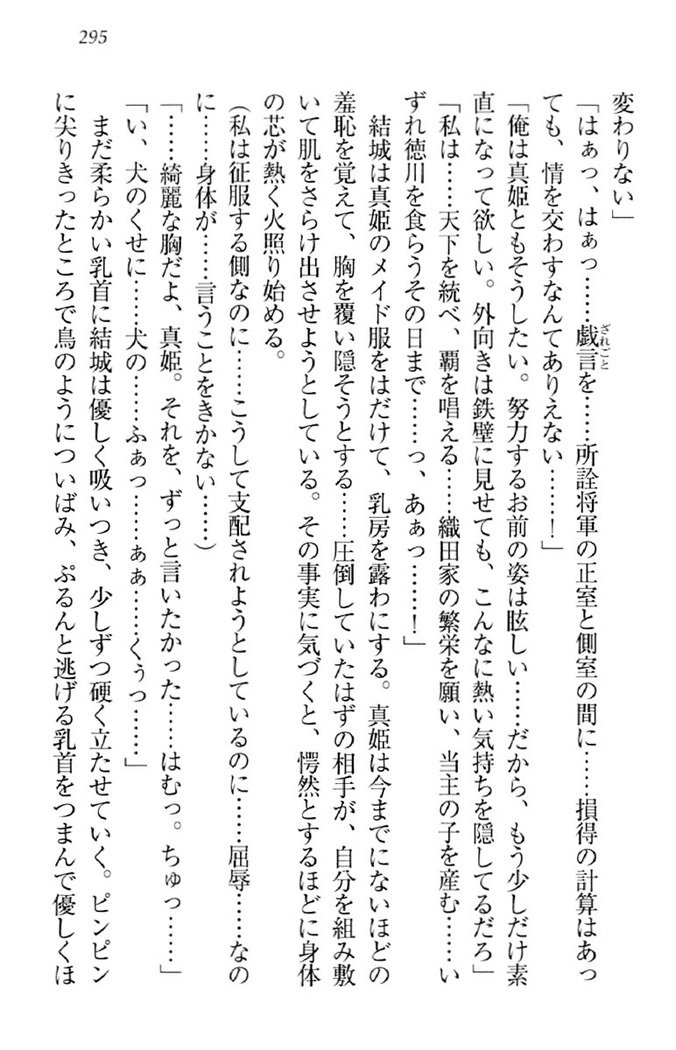 295
変わりない」
「はぁっ、はぁっ……戯言を……所詮将軍の正室と側室の間に……損得の計算はあっ
ざれごと
ても、情を交わすなんてありえない……！」
「俺は真姫ともそうしたい。努力するお前の姿は眩しい……だから、もう少しだけ素
直になって欲しい。外向きは鉄壁に見せても、こんなに熱い気持ちを隠してるだろ」
「私は……天下を統べ、覇を唱える……織田家の繁栄を願い、当主の子を産む……い
ずれ徳川を食らうその日まで……っ、あぁっ……！」
　結城は真姫のメイド服をはだけて、乳房を露わにする。真姫は今までにないほどの
羞恥を覚えて、胸を覆い隠そうとする……圧倒していたはずの相手が、自分を組み敷
いて肌をさらけ出させようとしている。その事実に気づくと、愕然とするほどに身体
の芯が熱く火照り始める。
（私は征服する側なのに……こうして支配されようとしているのに……屈辱……なの
に……身体が……言うことをきかない……）
「……綺麗な胸だよ、真姫。それを、ずっと言いたかった……はむっ。ちゅっ……」
「い、犬のくせに……犬の……ふぁっ……ぁぁ……くぅっ……」
　まだ柔らかい乳首に結城は優しく吸いつき、少しずつ硬く立たせていく。ピンピン
に尖りきったところで鳥のようについばみ、ぷるんと逃げる乳首をつまんで優しくほ